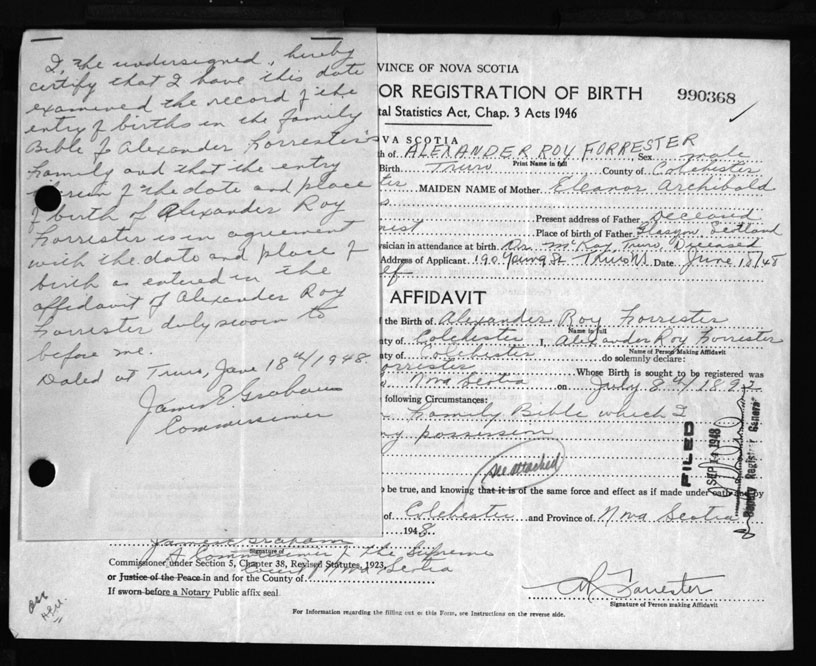 I, the undersigned, hereby
certify that I have this date
examined the record of the
entry of births in the family
Bible of Alexander Forrester's
Family and that the entry
therein of the date and place
of birth of Alexander Roy
Forrester is in agreement
with the date and place of
birth as entered in the
affidavit of Alexander Roy
Forrester duly sworn to
before me.
Dated at Truro, June 18th/1948.
James E. Graham
Commissioner
VINCE OF NOVA SCOTIA
OR REGISTRATION OF BIRTH
990368
tal Statistics Act, Chap. 3 Acts 1946
VA SCOTIA
th of ALEXANDER ROY FORRESTER, Sex male
Print Name in full
Birth Truro County of Colchester
ter MAIDEN NAME of Mother Eleanor Archibald
Present address of Father deceased
nist Place of birth of Father Glasgow, Scotland
sician in attendance at birth Dr. McKay, Truro, Deceased
Address of Applicant 190 Young St Truro N Date June 18/48
elf
AFFIDAVIT
f the Birth of Alexander Roy Forrester
Name in full
ty of Colchester I, Alexander Roy Forrester
Name of Person Making Affidavit
ty of Colchester do solemnly declare:
orrester Whose Birth is sought to be registered was
Nova Scotia on July 8th/1892
following Circumstances:
Family Bible which I
my possession
see attached
FILED
SEP 1948
Deputy Registrar General
o be true, and knowing that it is of the same force and effect as if made under oath and by
of Colchester and Province of Nova Scotia
1948.
James E. Graham
Signature of
A Commissioner of the Supreme
Court of Nova Scotia
Commissioner under Section 5, Chapter 38, Revised Statutes, 1923,
or Justice of the Peace in and for the County of
If sworn before a Notary Public affix seal.
AR Forrester
Signature of Person making Affidavit
For Information regarding the filling out of this Form, see Instructions on the reverse side.